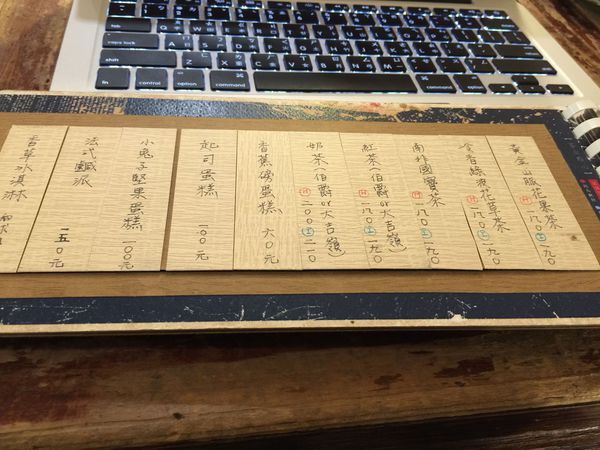 黃金山脈花果茶 H 一八〇 I 一九〇
香綠波花草茶 H 一八〇 I 一九〇
南非國寶茶 H 一八〇 I 一九〇
紅茶(伯爵or大吉嶺) H 一八〇 I 一九〇
奶茶(伯爵or大吉嶺) H 二〇〇 I 二一〇
香蕉磅蛋糕 六〇元
起司蛋糕 一〇〇元
小兔子堅果蛋糕 一〇〇元
法式鹹派 一五〇元
香草冰淇淋
tab
caps lock
shift
fn control option command
command option